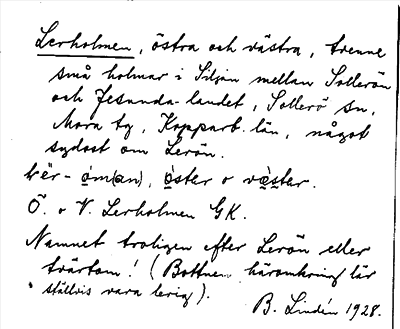 Lerholmen, östra och västra, tvenne
små holmar i Siljan mellan Sollerön
och Jesunda-landet, Sollerö sn,
Mora tg, Kopparb. län, något
sydost om Lerön.
öster o väster.
Ö. o V. Lerholmen GK.
Namnet troligen efter Lerön eller
tvärtom! (Bottnen häromkring lär
ställvis vara lerig).
B. Lindén 1928.